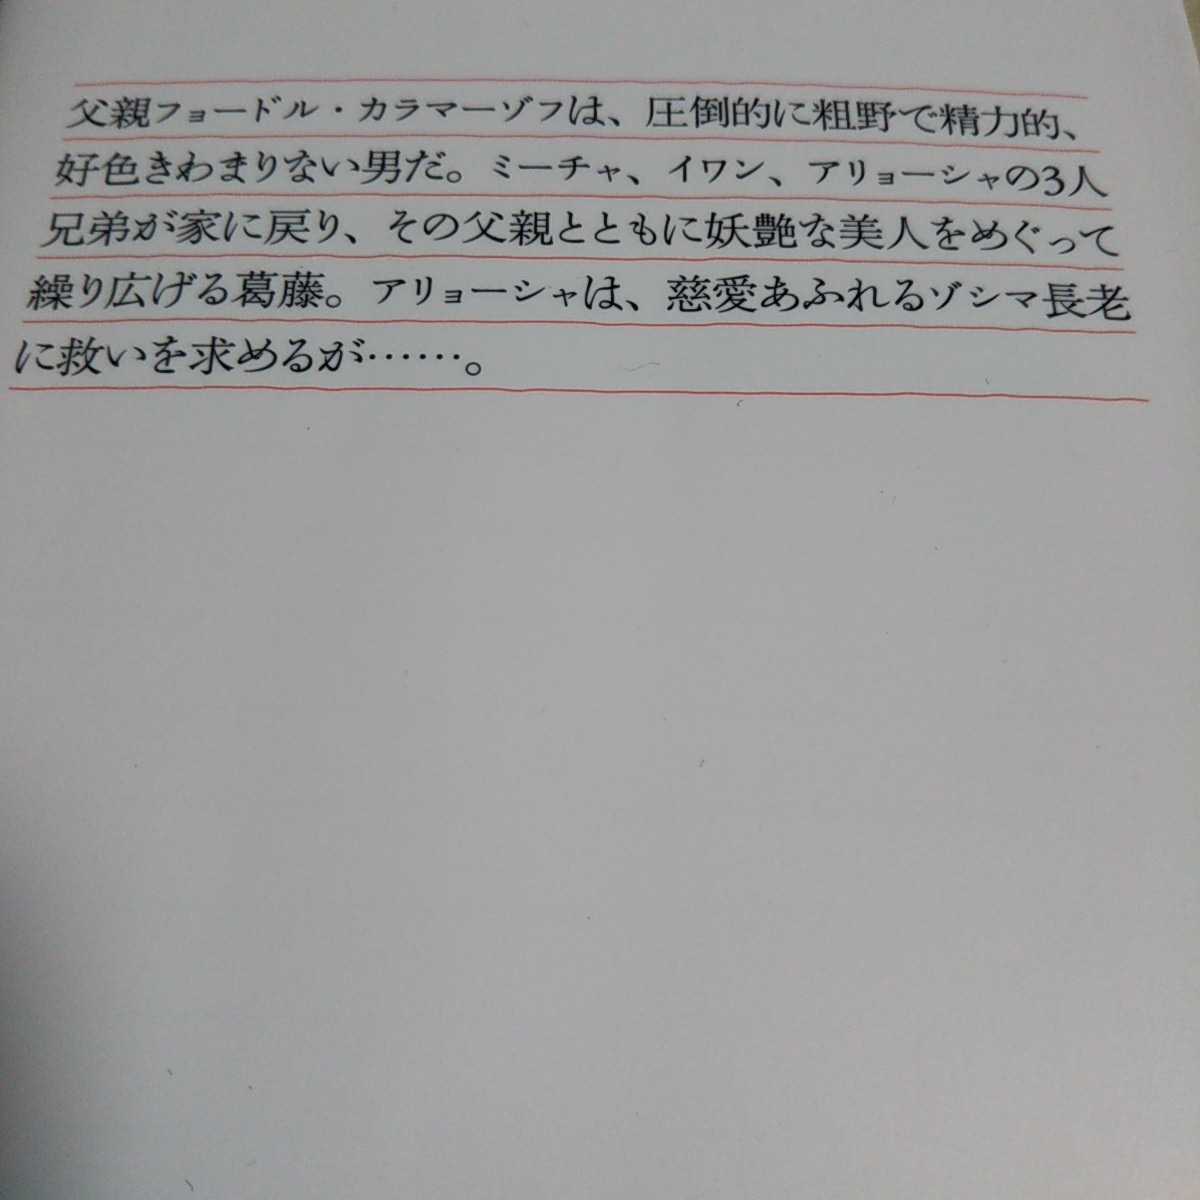 父親フョードル・カラマーゾフは、圧倒的に粗野で精力的、
好色きわまりない男だ。ミーチャ、イワン、アリョーシャの3人
兄弟が家に戻り、その父親とともに妖艶な美人をめぐって
繰り広げる葛藤。アリョーシャは、慈愛あふれるゾシマ長老
に救いを求めるが……。